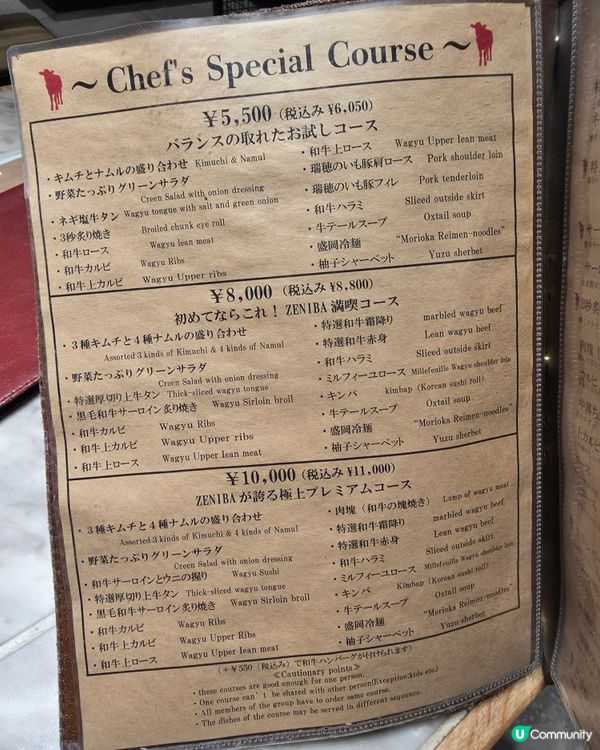 ～ Chef's Special Course ～
￥5,500 (税込み ￥6,050)
バランスの取れたお試しコース
・キムチとナムルの盛り合わせ Kimuchi & Namul
・野菜たっぷりグリーンサラダ
Creen Salad with onion dressing
・ネギ塩牛タン Wagyu tongue with salt and green onion
・3秒炙り焼き Broiled chunk eye roll
・和牛ロース Wagyu lean meat
・和牛カルビ Wagyu Ribs
・和牛上カルビ Wagyu Upper ribs
・和牛上ロース Wagyu Upper lean meat
・瑞穂のいも豚肩ロース Pork shoulder loin
・瑞穂のいも豚フィレ Pork tenderloin
・和牛ハラミ Sliced outside skirt
・牛テールスープ Oxtail soup
・盛岡冷麺 “Morioka Reimen-noodles”
・柚子シャーベット Yuzu sherbet
￥8,000 (税込み ￥8,800)
初めてならこれ！ ZENIBA 満喫コース
・3種キムチと4種ナムルの盛り合わせ
Assorted 3 kinds of Kimuchi & 4 kinds of Namul
・野菜たっぷりグリーンサラダ
Creen Salad with onion dressing
・特選厚切り上牛タン Thick-sliced wagyu tongue
・黒毛和牛サーロイン炙り焼き Wagyu Sirloin broil
・和牛カルビ Wagyu Ribs
・和牛上カルビ Wagyu Upper ribs
・和牛上ロース Wagyu Upper lean meat
・特選和牛霜降り marbled wagyu beef
・特選和牛赤身 Lean wagyu beef
・和牛ハラミ Sliced outside skirt
・ミルフィーユロース Millefeuille Wagyu shoulder loin
・キンパ kimbap (Korean sushi roll)
・牛テールスープ Oxtail soup
・盛岡冷麺 “Morioka Reimen-noodles”
・柚子シャーベット Yuzu sherbet
￥10,000 (税込み ￥11,000)
ZENIBA が誇る極上プレミアムコース
・3種キムチと4種ナムルの盛り合わせ
Assorted 3 kinds of Kimuchi & 4 kinds of Namul
・野菜たっぷりグリーンサラダ
Creen Salad with onion dressing
・和牛サーロインとウニの握り Wagyu Sushi
・特選厚切り上牛タン Thick-sliced wagyu tongue
・黒毛和牛サーロイン炙り焼き Wagyu Sirloin broil
・和牛カルビ Wagyu Ribs
・和牛上カルビ Wagyu Upper Ribs
・和牛上ロース Wagyu Upper lean meat
・肉塊（和牛の塊焼き） Lump of wagyu meat
・特選和牛霜降り marbled wagyu beef
・特選和牛赤身 Lean wagyu beef
・和牛ハラミ Sliced outside skirt
・ミルフィーユロース Millefeuille Wagyu shoulder loin
・キンパ Kimbap (Korean sushi roll)
・牛テールスープ Oxtail soup
・盛岡冷麺 “Morioka Reimen-noodles”
・柚子シャーベット Yuzu sherbet
(＋￥550（税込み）で和牛ハンバーグが付けられます)
≪Cautionary points≫
・these courses are good enough for one person.
・One course can't be shared with other person(Exception:kids etc.)
・All members of the group have to order same course.
・The dishes of the course may be served in different sequence.
U Community